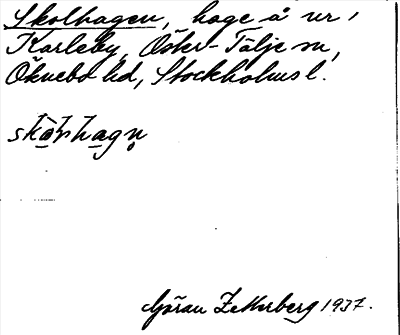 Skolhagen, hage å nr 1
Karleby, Öster-Tälje sn,
Öknebo hd, Stockholms l.
skòlhagn̥
Göran Zetterberg 1937.